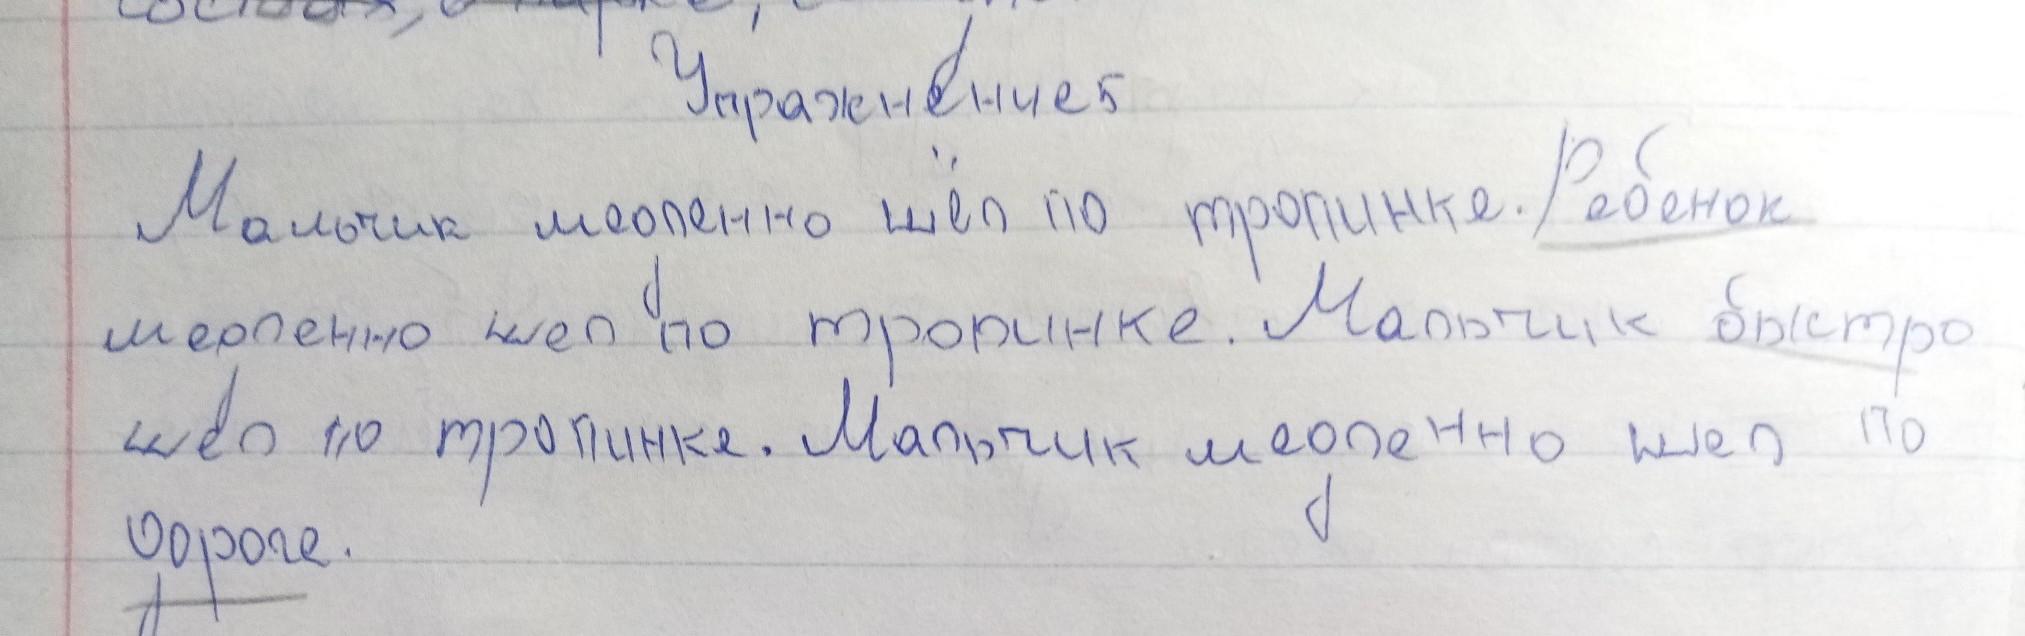 Упражнение 5
Мальчик медленно шёл по тропинке. Ребенок
медленно шел по тропинке. Мальчик быстро
шёл по тропинке. Мальчик медленно шел по
дороге.